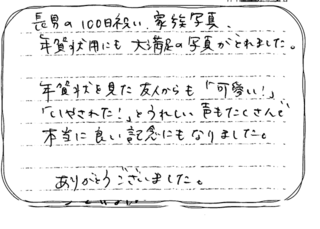 長男の100日祝い家族写真、
年賀状用にも大満足の写真がとれました。
年賀状を見た友人からも「可愛い!」
「いやされた!」とうれしい声もたくさんで
本当に良い記念にもなりました。
ありがとうございました。